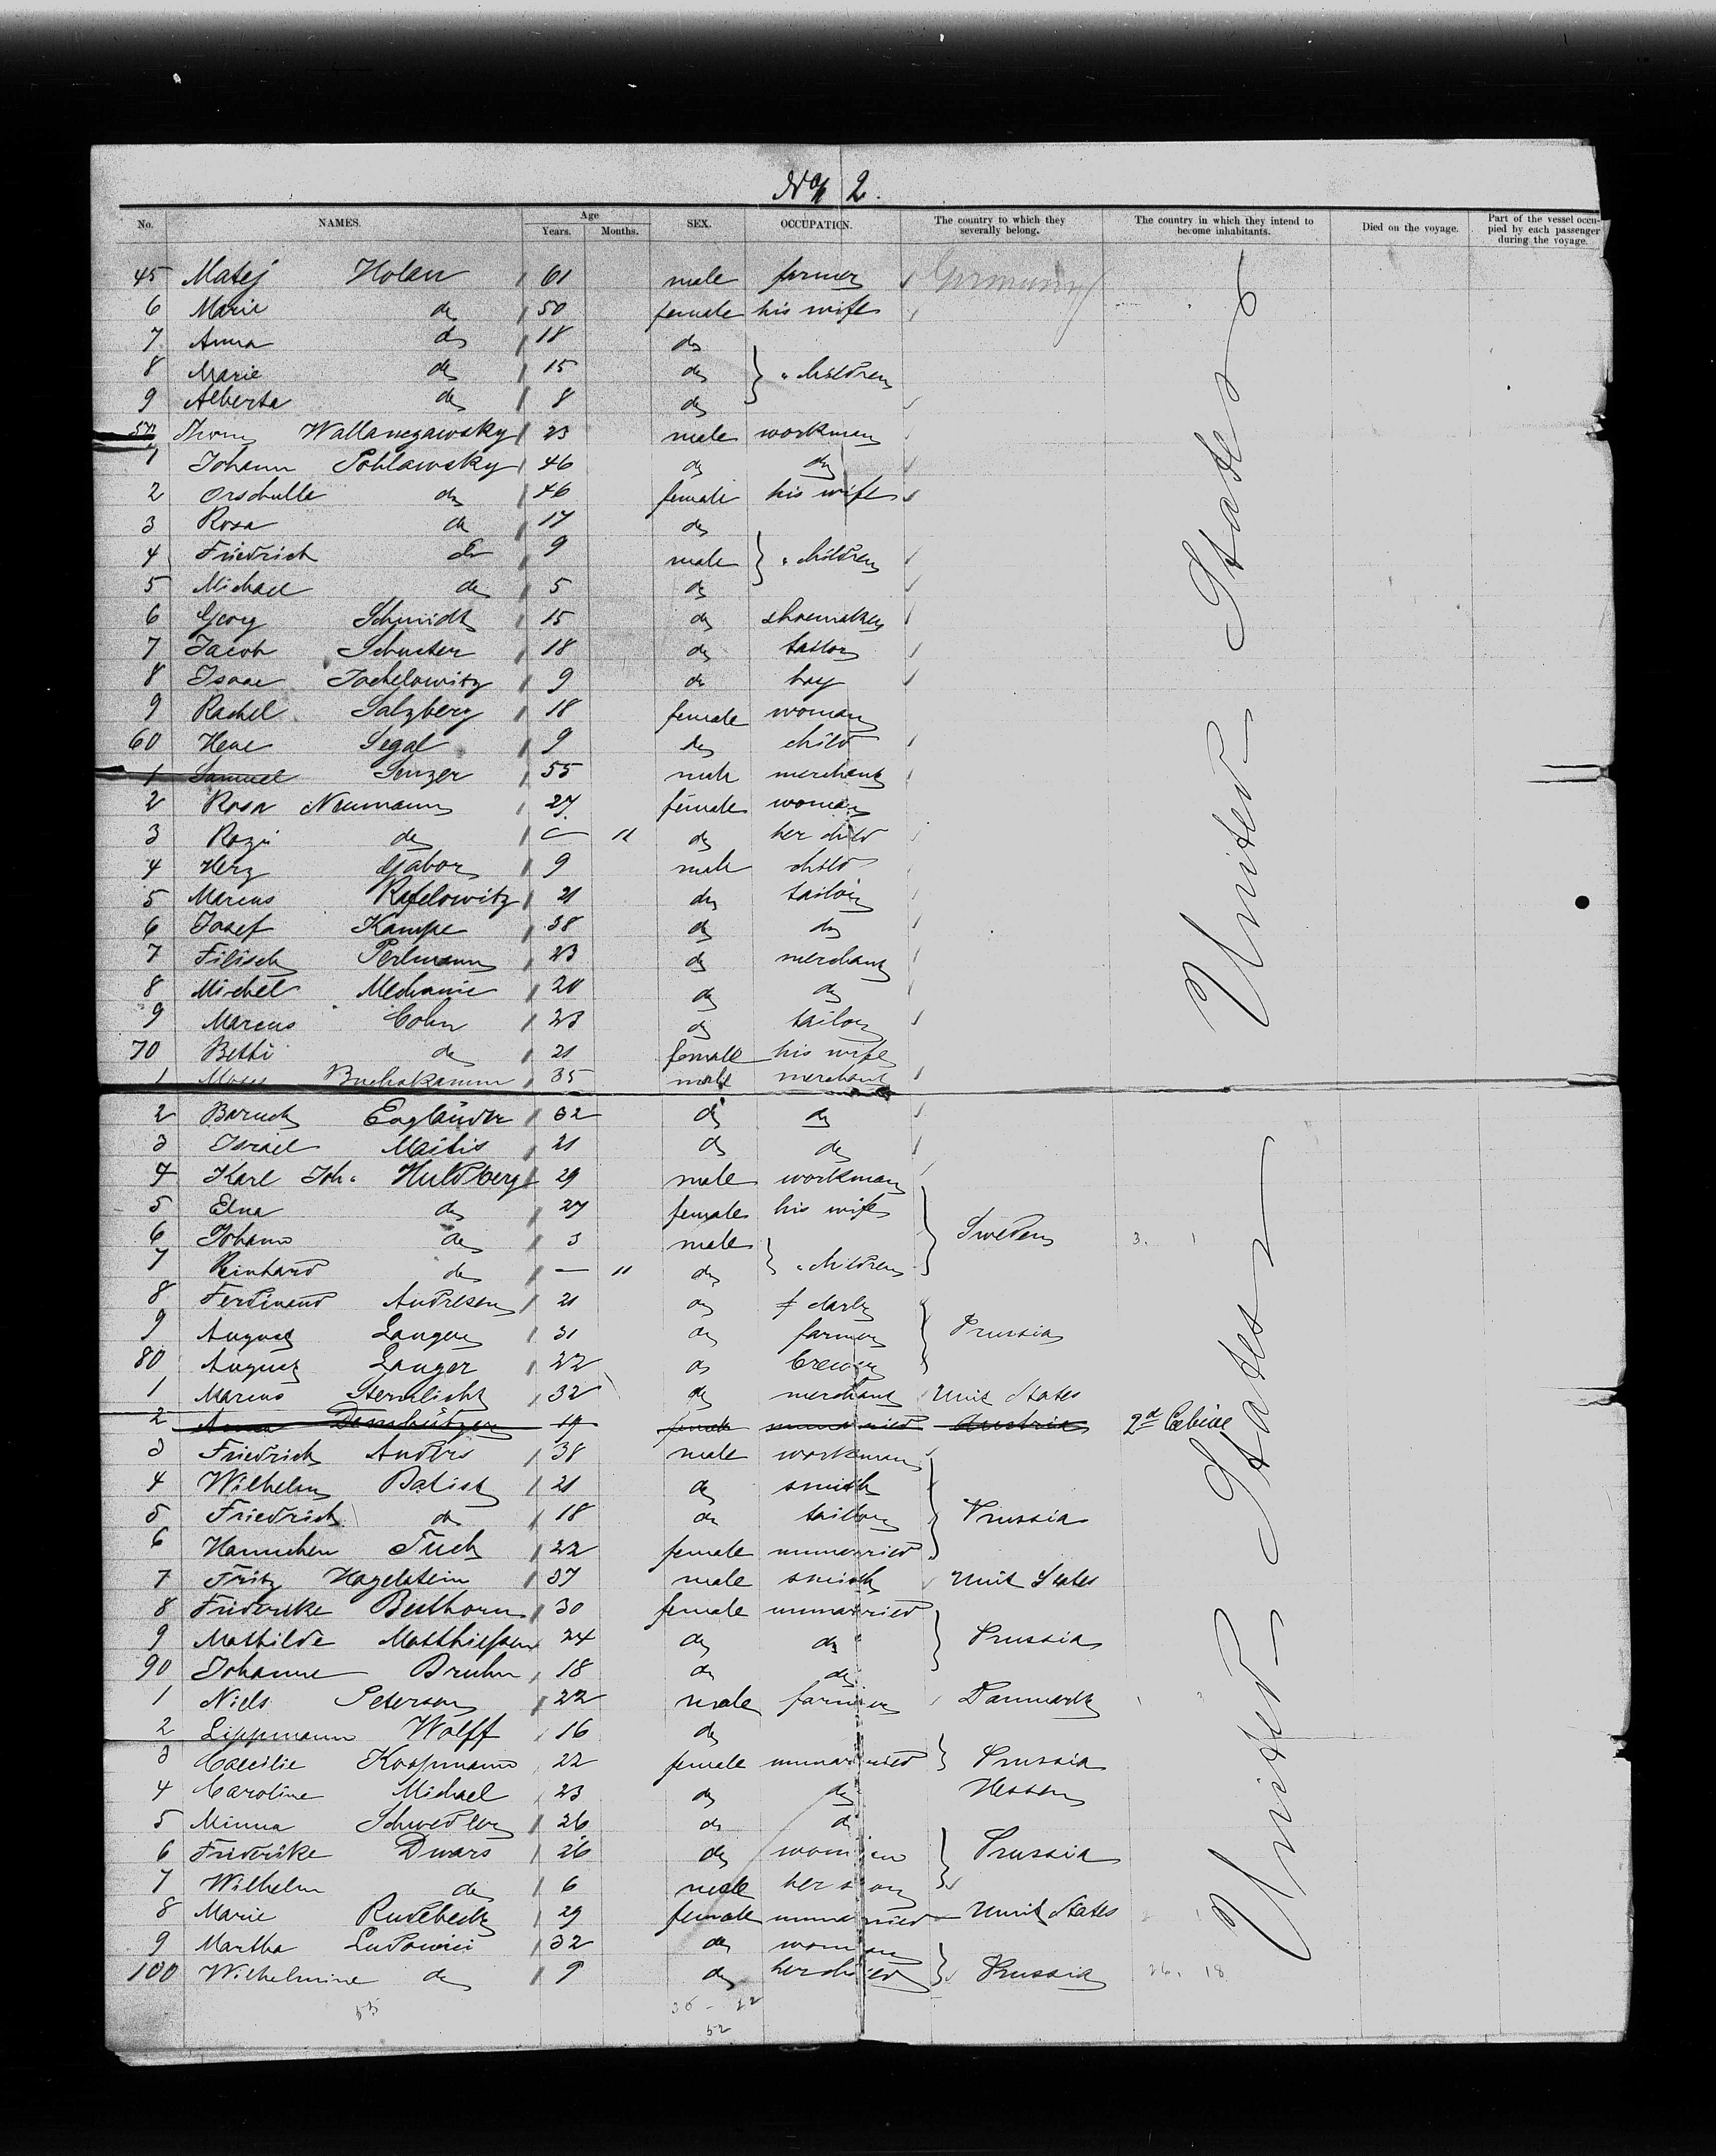 No 2.
No. NAMES. Age Years. Months. SEX. OCCUPATION. The country to which they severally belong. The country in which they intend to become inhabitants. Died on the voyage. Part of the vessel occupied by each passenger during the voyage.
45 Matej Holan 61 male farmer Germany
6 Marie do 50 female his wife
7 Anna do 18 do
8 Marie do 15 do children
9 Alberta do 8 do
50 Wallanczawsky 23 male workman
1 Johann Pohlawsky 46 do do
2 Orschulle do 46 female his wife
3 Rosa do 17 do
4 Friedrich do 9 male children
5 Michael do 5 do
6 Georg Schmidt 15 do shoemaker
7 Jacob Schuster 18 do tailor
8 Isaac Jochelowitz 9 do boy
9 Rachel Salzberg 18 female woman
60 Hene Segal 9 do child
1 Samuel Senzer 55 male merchant
2 Rosa Neumann 27 female woman
3 Rozi do — 11 do her child
4 Herz Gabor 9 male child
5 Marcus Rafelowitz 21 do tailor
6 Josef Kampe 38 do do
7 Filisch Perlmann 23 do merchant
8 Michel Mechanic 20 do do
9 Marcus Cohn 23 do tailor
70 Betti do 21 female his wife
1 Moses 35 male merchant
2 Baruch Engländer 32 do do
3 Israel Maitis 21 do do
4 Karl Joh. Huldberg 29 male workman
5 Elna do 27 female his wife
6 Johann do 3 male Sweden 3. 1
7 Reinhard do — 11 do children
8 Ferdinand Andresen 21 do clerk
9 August Langer 31 do farmer Prussia
80 August Langer 22 do brewer
1 Marcus Sternlicht 32 do merchant Unit States
2 Anna 19 female unmarried Austria 2d Cabine
3 Friedrich Anders 38 male workman
4 Wilhelm Batist 21 do smith
5 Friedrich do 18 do tailor Prussia
6 Hannchen Tuch 22 female unmarried
7 Fritz Hagelstein 37 male smith Unit States
8 Friderike Besthorn 30 female unmarried
9 Mathilde Matthiessen 24 do do Prussia
90 Johanne Bruhn 18 do do
1 Niels Petersen 22 male farmer Danmark
2 Lippmann Wolff 16 do
3 Caecilie Koopmann 22 female unmarried Prussia
4 Caroline Michael 23 do do Hessen
5 Minna Schwedler 26 do do
6 Friderike Dwars 26 do woman Prussia
7 Wilhelm do 6 male her son
8 Marie Rudebeck 29 female unmarried Unit States
9 Martha Ludowici 32 do woman
100 Wilhelmine do 9 do her child Prussia 26. 18
United States
United States
52